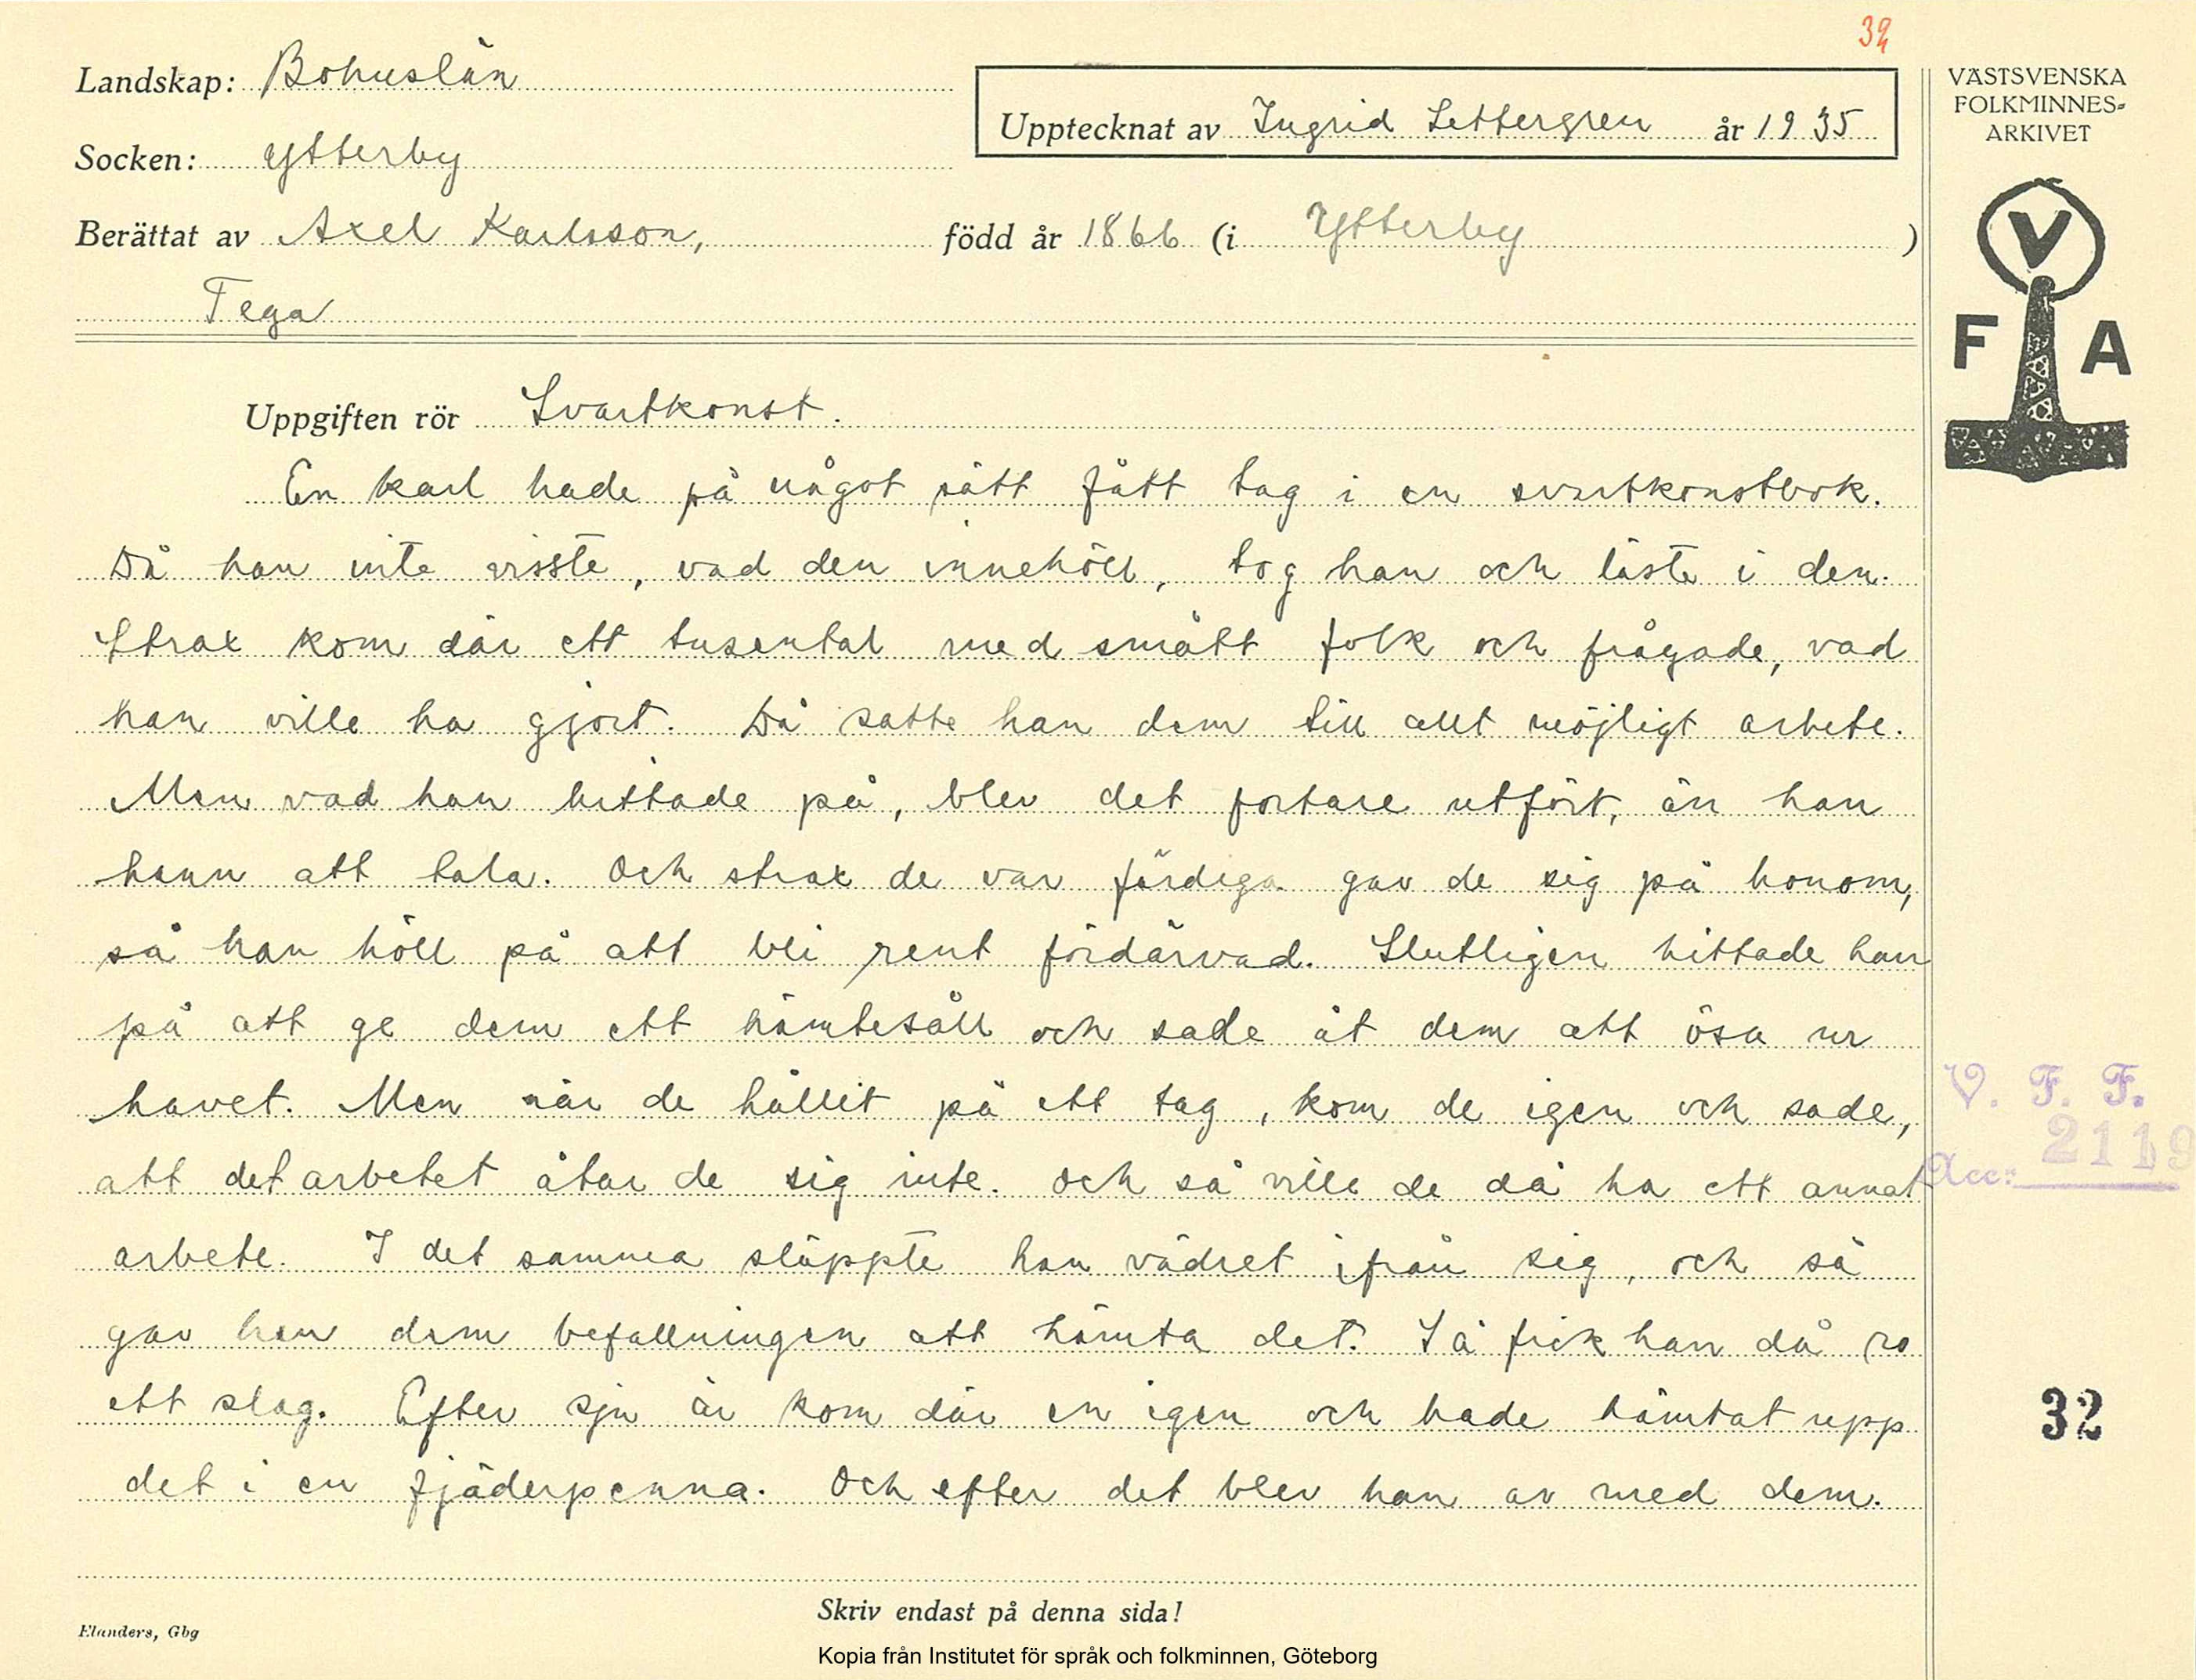 32
Landskap: Bohuslän
Upptecknat av Ingrid Settergren år 1935
Socken: Ytterby
Berättat av Axel Karlsson, född år 1866 (i Ytterby)
Tega
VÄSTSVENSKA
FOLKMINNES-
ARKIVET
V
F A
Uppgiften rör Svartkonst.
En karl hade på något sätt fått tag i en svartkonstbok.
Då han inte visste, vad den innehöll, tog han och läste i den.
Strax kom där ett tusental med smått folk och frågade, vad
han ville ha gjort. Då satte han dem till allt möjligt arbete.
Men vad han hittade på, blev det fortare utfört, än han
hann att tala. Och strax de var färdiga gav de sig på honom,
så han höll på att bli rent fördärvad. Slutligen hittade han
på att ge dem ett hämtesåll och sade åt dem att ösa ur
havet. Men när de hållit på ett tag, kom de igen och sade,
att det arbetet åtar de sig inte. Och så ville de då ha ett annat
arbete. I det samma släppte han vädret ifrån sig, och så
gav han dem befallningen att hämta det. Så fick han då ro
ett slag. Efter sju år kom där en igen och hade hämtat upp
det i en fjäderpenna. Och efter det blev han av med dem.
V. F. F.
Acc: 2119
32
Skriv endast på denna sida!
Elanders, Gbg
Kopia från Institutet för språk och folkminnen, Göteborg